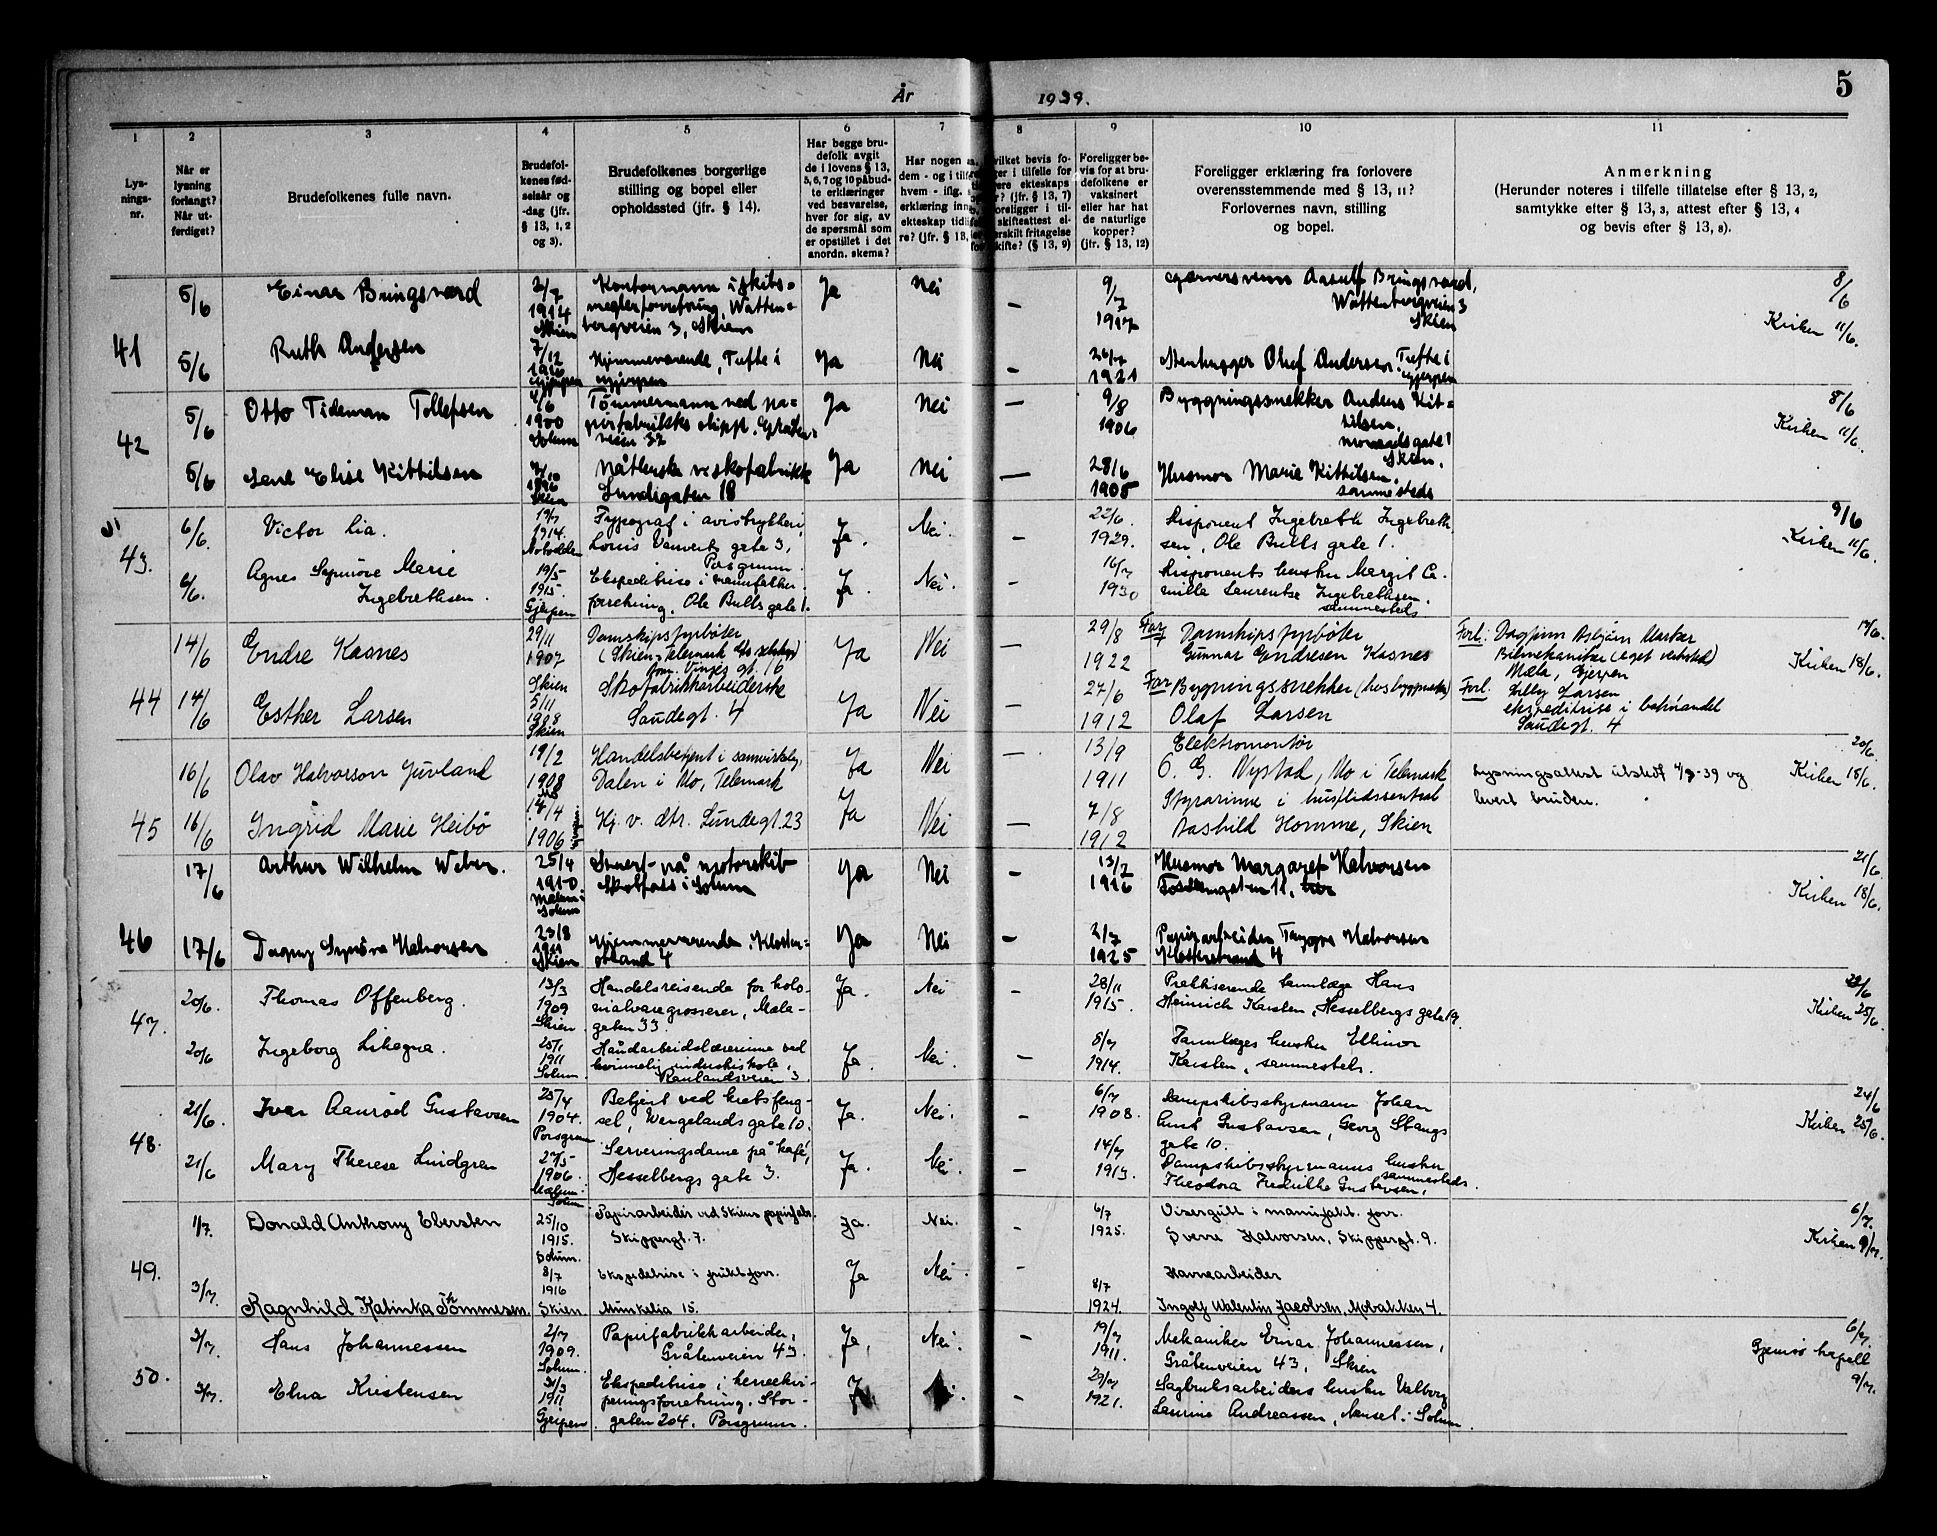 År 1939.
5
1 2 3 4 5 6 7 8 9 10 11
Lys-
nings-
nr.
Når er
lysning
forlangt?
Når ut-
ferdiget?
Brudefolkenes fulle navn.
Brudefol-
kenes fød-
selsår og
-dag (jfr.
§ 13, 1, 2
og 3).
Brudefolkenes borgerlige
stilling og bopel eller
opholdssted (jfr. § 14).
Har begge bru-
defolk avgit
de i lovens § 13,
5, 6, 7 og 10 påbud-
te erklæringer
ved besvarelse,
hver for sig, av
de spørsmål som
er opstillet i det
anordn. skema?
Har nogen
dem - og i
hvem - iflg.
erklæring
ekteskap
re? (jfr. § 13,
Foreligger be-
vis for at bru-
defolkene er
vaksinert
eller har hat
de naturlige
kopper?
(jfr. § 13, 12)
Foreligger erklæring fra forlovere
overensstemmende med § 13, 11?
Forlovernes navn, stilling
og bopel.
Anmerkning
(Herunder noteres i tilfelle tillatelse efter § 13, 2,
samtykke efter § 13, 3, attest efter § 13, 4
og bevis efter § 13, 8).
41
5/6 Einar Bringsværd
2/7
1914
Skien
Kontormann i skibs-
meglerforretning, Watten-
bergveien 3, Skien
Ja Nei —
9/7
1917
Aasulf Bringsværd,
Wattenbergveien 3
Skien
8/6
Kirken 11/6.
5/6 Ruth Andersen
7/12
1916
Gjerpen
Hjemmeværende, Tufte i
Gjerpen
Ja Nei —
26/7
1921
Stenhugger Oluf Andersen, Tufte i
Gjerpen
42
5/6 Otto Tideman Tollefsen
1900
Solum
Tømmermann ved pa-
pirfabrikks
veien 32
Ja Nei —
9/8
1906
Byggningssnekker Anders Kit-
tilsen,
Skien.
8/6
Kirken 11/6.
5/6 Lene Elise Kittilsen
1896
Skien
Nåtlerske v. skofabrikk
Lundegaten 18
Ja Nei —
28/6
1905
Husmor Marie Kittilsen,
sammesteds
43.
6/6. Victor Lia.
19/7
1914.
Notodden
Typograf i avistrykkeri,
Louis Vanverts gate 3,
Porsgrunn.
Ja. Nei. —
22/6.
1929.
Disponent Ingebreth Ingebreth
sen, Ole Bulls gate 1.
9/6
Kirken 11/6.
6/6. Agnes Synnøve Marie
Ingebrethsen.
19/5
1915.
Gjerpen
Ekspeditrise i manufaktur
forretning, Ole Bulls gate 1.
Ja. Nei. —
16/7
1930
Disponents hustru Margit Ca-
milla Laurentze Ingebrethsen.
sammesteds
44
14/6 Endre Kasnes
29/11
1907
Skien
Damskipsfyrbøter
(Skien-Telemark
Vinjes gt. 16
Ja Nei —
29/8
1922
Far Damskipsfyrbøter
Gunnar Endresen Kasnes
Forl.: Dagfinn Asbjørn Markær
Bilmekaniker (eget verksted)
Mæla, Gjerpen
Kirken 18/6.
14/6 Esther Larsen
5/11
1908
Skien
Skofabrikkarbeiderske
Saudegt. 4
Ja Nei —
27/6
1912
Far Bygningssnekker
Olaf Larsen
Forl. Lilly Larsen
ekspeditrise i
Saudegt. 4
45
16/6 Olav Halvorson Juvland
19/2
1908
Mo
Handelsbetjent i samvirkelag,
Dalen i Mo, Telemark
Ja Nei —
13/9
1911
Elektromontør
O. G. Nystad, Mo i Telemark
Lysningsattest utstedt 4/7-39 og
levert bruden.
20/6.
Kirken 18/6.
16/6 Ingrid Marie Heibø
14/4
1906
Hj. v. dtr. Lundegt. 23
Ja Nei
7/8
1912
Styrarinne i husflidssentral
Aashild Homme, Skien
46
17/6 Arthur Wilhelm Weber.
25/4
1910
Solum
på motorskib
Skotfoss i Solum
Ja Nei —
13/7
1916
Husmor Margaret Halvorsen
21/6.
Kirken 18/6.
17/6 Dagny Synøve Halvorsen
23/8
1911
Skien
Hjemmeværende. Kloster-
strand 4
Ja Nei —
2/7
1925
Papirarbeider Trygve Halvorsen
Klosterstrand 4
47.
20/6. Thomas Offenberg.
13/3
1909
Skien.
Handelsreisende for kolo-
nialvaregrosserer, Mæla-
gaten 33.
Ja. Nei —
28/11
1915.
Praktiserende tannlæge Hans
Heinrich Karsten, Hesselbergs gate 19.
22/6
Kirken 25/6.
20/6 Ingeborg Likagna.
25/1
1911
Solum.
Håndarbeidslærerinne ved
kvinnelig industriskole,
Raulandsveien 3.
Ja. Nei. —
8/7
1914.
Tannlæges hustru Ellinor
Karsten, sammesteds.
48.
21/6. Ivar Aanrød Gustavsen
25/4
1904.
Porsgrunn
Betjent ved kretsfeng-
sel, Wergelands gate 10.
Ja. Nei. —
6/7
1908.
Dampskibsstyrmann Johan
Gustavsen, Georg Stangs
gate 10.
24/6
Kirken 25/6.
21/6 Mary Therese Lindgren
27/5
1906.
Mælum
Solum
Serveringsdame på kafé,
Hesselbergs gate 3.
Ja. Nei. —
14/7
1913.
Dampskibsstyrmanns hustru
Theodora Fredrikke Gustavsen, sammesteds.
49.
1/7. Donald Anthony Ebersten
25/10
1915.
Solum.
Papirarbeider ved Skiens papirfabr.
Skippergt. 7.
Ja. Nei. —
6/7
1925.
Visergutt i manufakt. forr.
Sverre Halvorsen, Skippergt. 9.
6/7.
Kirken 9/7.
3/7. Ragnhild Katinka Thommesen.
8/7
1916
Skien
Ekspeditrise i fruktforr.
Munkelia 15.
Ja Nei. —
8/7
1924.
Havnearbeider
Ingolf Valentin Jacobsen, Mobakken 4.
50.
3/7. Hans Johannessen
2/7
1909.
Solum.
Papirfabrikkarbeider,
Gråtenveien 43.
Ja. Nei. —
19/7
1911.
Mekaniker Einar Johannessen,
Gråtenveien 43, Skien
6/7.
Gjemsø kapell
9/7.
3/7. Elna Kristensen
31/3
1911
Gjerpen
Ekspeditrise i herreekvi-
peringsforretning. Stor-
gaten 204. Porsgrunn.
Ja. —
29/7
1921.
Sagbruksarbeiders hustru Valborg
Laurine Andreassen, Nenset i Solum.